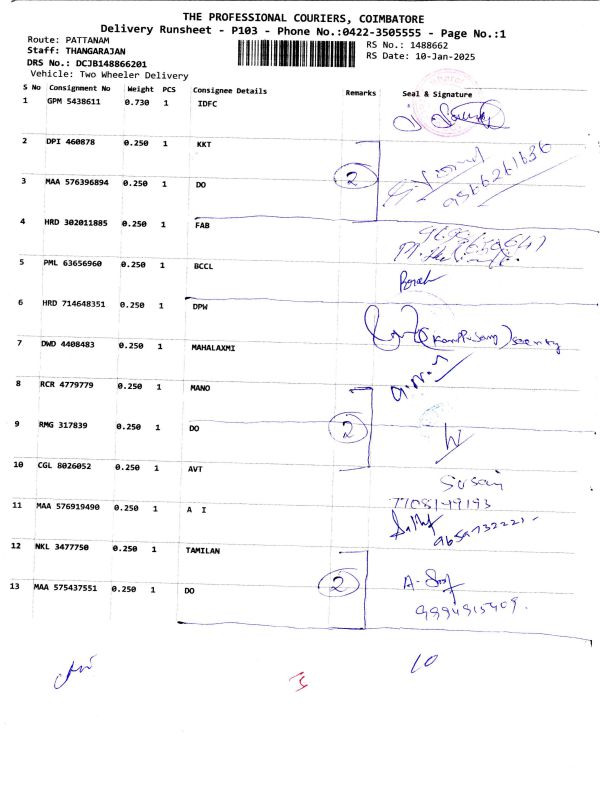 THE PROFESSIONAL COURIERS, COIMBATORE
Delivery Runsheet - P103 - Phone No.:0422-3505555 - Page No.:1
Route: PATTANAM
RS No.: 1488662
Staff: THANGARAJAN
RS Date: 10-Jan-2025
DRS No.: DCJB148866201
Vehicle: Two Wheeler Delivery
S No Consignment No Weight PCS Consignee Details Remarks Seal & Signature
1 GPM 5438611 0.730 1 IDFC
2 DPI 460878 0.250 1 KKT
2
3 MAA 576396894 0.250 1 DO
4 HRD 302011885 0.250 1 FAB
5 PML 63656960 0.250 1 BCCL
6 HRD 714648351 0.250 1 DPW
7 DWD 4408483 0.250 1 MAHALAXMI
8 RCR 4779779 0.250 1 MANO
9 RMG 317839 0.250 1 DO 2
10 CGL 8026052 0.250 1 AVT
11 MAA 576919490 0.250 1 A I
12 NKL 3477750 0.250 1 TAMILAN
13 MAA 575437551 0.250 1 DO 2
10